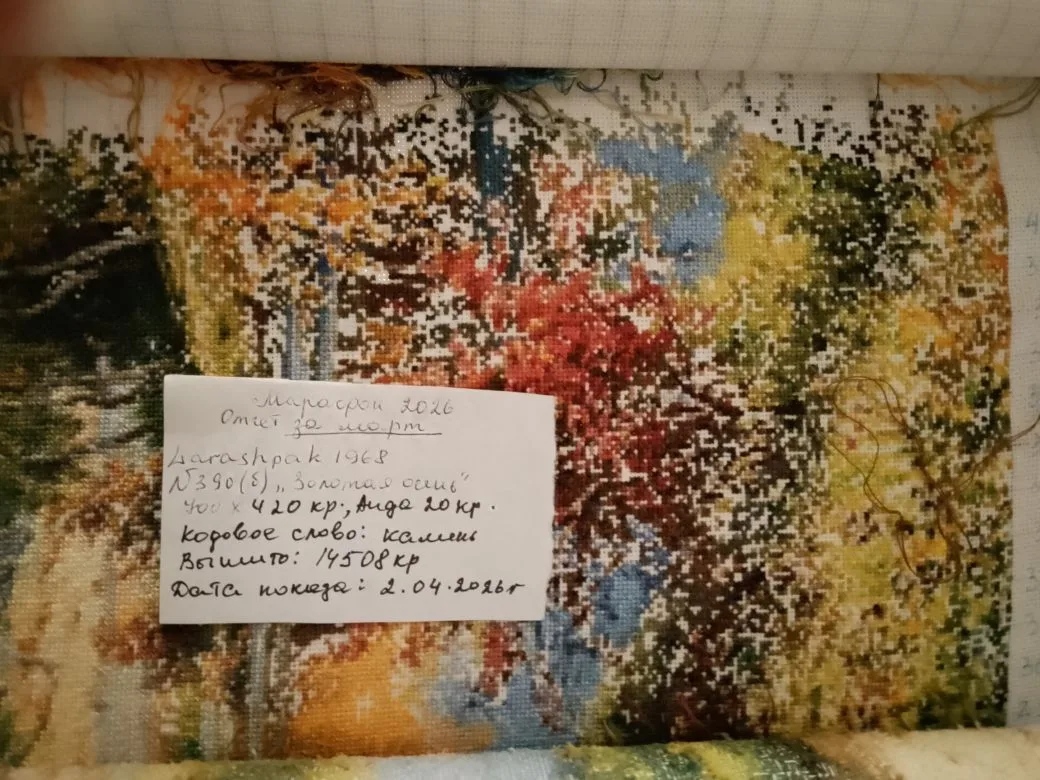 Марафон 2026
Отчет за март
Larashpak 1968
№390(Б) „Золотая осень"
400 x 420 кр., Аида 20 кр.
Кодовое слово: камень
Вышито: 14508 кр
Дата показа: 2.04.2026 г